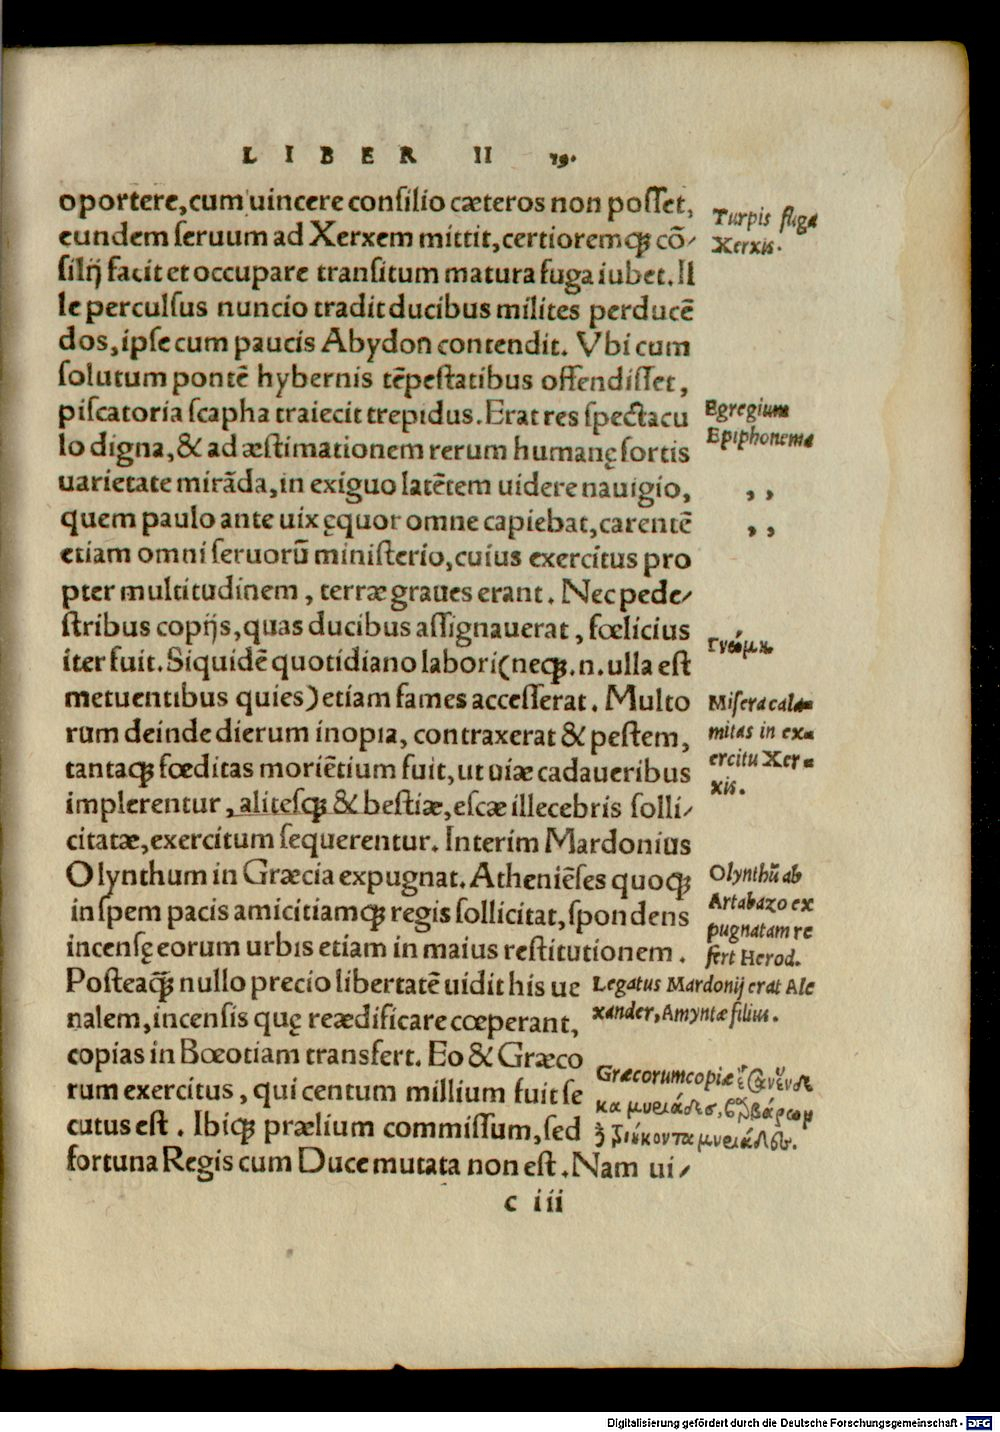 LIBER II 19.
oportere,cum uincere consilio cæteros non posſet,
eundem ſeruum ad Xerxem mittit,certioremq̃ cõ-
ſilĳ facit et occupare tranſitum matura fuga iubet.Il
le perculſus nuncio tradit ducibus milites perducẽ
dos,ipſe cum paucis Abydon contendit. Vbi cum
ſolutum pontẽ hybernis tẽpeſtatibus offendiſſet,
piſcatoria ſcapha traiecit trepidus.Erat res ſpectacu
lo digna,& ad æſtimationem rerum humanę ſortis
uarietate mirãda,in exiguo latẽtem uidere nauigio,
quem paulo ante uix ęquor omne capiebat,carentẽ
etiam omni ſeruorũ miniſterio,cuius exercitus pro
pter multitudinem, terræ graues erant. Nec pede-
ſtribus copĳs,quas ducibus aſſignauerat, fœlicius
iter fuit.Siquidẽ quotidiano labori(neq̃.n.ulla eſt
metuentibus quies)etiam fames acceſſerat. Multo
rum deinde dierum inopia, contraxerat & peſtem,
tantaq̃ fœditas moriẽtium fuit,ut uiæ cadaueribus
implerentur,alitesq̃ & beſtiæ,eſcæ illecebris ſolli-
citatæ,exercitum ſequerentur. Interim Mardonius
Olynthum in Græcia expugnat.Atheniẽſes quoq̃
in ſpem pacis amicitiamq̃ regis ſollicitat,ſpondens
incenſę eorum urbis etiam in maius reſtitutionem.
Poſteaq̃ nullo precio libertatẽ uidit his ue
nalem,incenſis quę reædificare cœperant,
copias in Bœotiam transfert. Eo & Græco
rum exercitus, qui centum millium fuit ſe
cutus eſt. Ibiq̃ prælium commiſſum,ſed
fortuna Regis cum Duce mutata non eſt.Nam ui-
c iii
Turpis fuga
Xerxis.
Egregium
Epiphonema
, ,
, ,
Γνώμη.
Miſera cala-
mitas in ex-
ercitu Xer-
xis.
Olynthũ ab
Artabazo ex
pugnatam re
fert Herod.
Legatus Mardonĳ erat Ale
xander,Amyntæ filius.
Græcorum copiæ